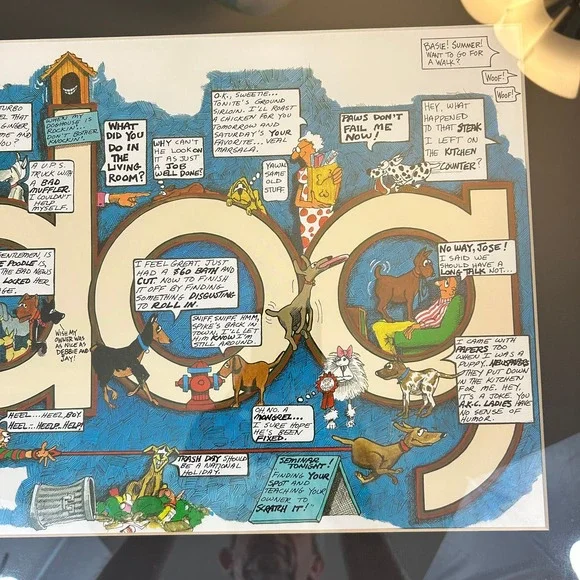 BASIE! SUMMER!
WANT TO GO FOR
A WALK?
WOOF!
WOOF!
TURBO
EL THAT
GINGER
ME AND
YOU?
WHEN MY
DOGHOUSE IS
ROCKIN'...
DON'T BOTHER
KNOCKIN'!
WHAT
DID YOU
DO IN
THE
LIVING
ROOM?
WHY CAN'T
HE LOOK ON
IT AS JUST
A JOB
WELL DONE!
O.K., SWEETIE...
TONITE'S GROUND
SIRLOIN. I'LL ROAST
A CHICKEN FOR YOU
TOMORROW AND
SATURDAY'S YOUR
FAVORITE... VEAL
MARSALA.
YAWN
SAME
OLD
STUFF
PAWS DON'T
FAIL ME
NOW!
HEY, WHAT
HAPPENED
TO THAT STEAK
I LEFT ON
THE KITCHEN
COUNTER?
A U.P.S.
TRUCK WITH
A BAD
MUFFLER.
I COULDN'T
HELP
MYSELF.
GENTLEMEN, IS
E POODLE IS
THE BAD NEWS
LOCKED HER
GE.
WISH MY
OWNER WAS
AS NICE AS
DEBBIE AND
JAY!
I FEEL GREAT. JUST
HAD A $60 BATH AND
CUT. NOW TO FINISH
IT OFF BY FINDING
SOMETHING DISGUSTING
TO ROLL IN.
SNIFF, SNIFF, HMM,
SPIKE'S BACK IN
TOWN. I'LL LET
HIM KNOW I'M
STILL AROUND.
NO WAY, JOSE!
I SAID WE
SHOULD HAVE A
LONG TALK NOT...
I CAME WITH
PAPERS TOO
WHEN I WAS A
PUPPY...NEWSPAPERS
THEY PUT DOWN
IN THE KITCHEN
FOR ME. HEY,
IT'S A JOKE. YOU
A.K.C. LADIES HAVE
NO SENSE OF
HUMOR.
OH NO. A
MONGREL...
I SURE HOPE
HE'S BEEN
FIXED.
HEEL...HEEL, BOY.
HEEL...HEELP...HELP!
TRASH DAY SHOULD
BE A NATIONAL
HOLIDAY.
SEMINAR
TONIGHT!
FINDING YOUR
SPOT AND
TEACHING YOUR
OWNER TO
SCRATCH IT!